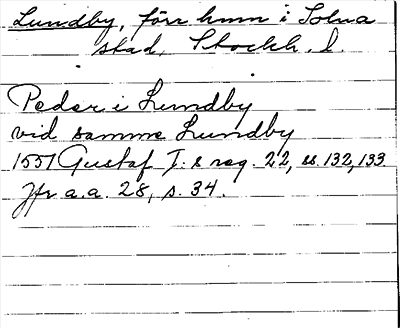 Lundby, förr hmn i Solna
stad, Stockh. l.
Peder i Lundby
vid samme Lundby
1551 Gustaf I:s reg. 22, ss. 132, 133
Jfr a.a. 28, s. 34.